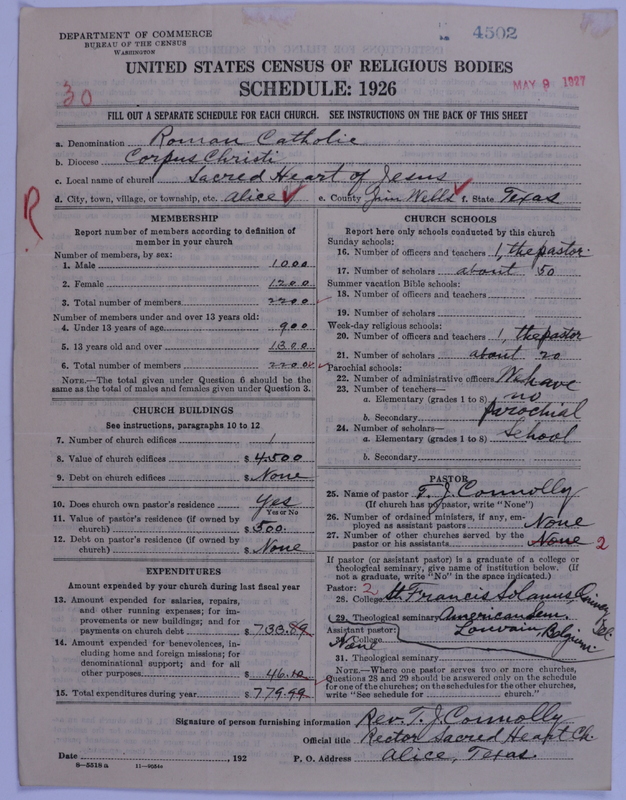 DEPARTMENT OF COMMERCE
BUREAU OF THE CENSUS
WASHINGTON
4502
UNITED STATES CENSUS OF RELIGIOUS BODIES
SCHEDULE: 1926
MAY 9 1927
30
FILL OUT A SEPARATE SCHEDULE FOR EACH CHURCH. SEE INSTRUCTIONS ON THE BACK OF THIS SHEET
a. Denomination Roman Catholic
b. Diocese Corpus Christi
c. Local name of church Sacred Heart of Jesus
d. City, town, village, or township, etc. Alice e. County Jim Wells f. State Texas
R
MEMBERSHIP
Report number of members according to definition of
member in your church
Number of members, by sex:
1. Male 1000
2. Female 1200
3. Total number of members 2200
Number of members under and over 13 years old:
4. Under 13 years of age 900
5. 13 years old and over 1300
6. Total number of members 2200
NOTE.—The total given under Question 6 should be the
same as the total of males and females given under Question 3.
CHURCH BUILDINGS
See instructions, paragraphs 10 to 12
7. Number of church edifices 1
8. Value of church edifices $4500
9. Debt on church edifices $None
10. Does church own pastor's residence Yes
Yes or No
11. Value of pastor's residence (if owned by
church) $500.
12. Debt on pastor's residence (if owned by
church) $None
EXPENDITURES
Amount expended by your church during last fiscal year
13. Amount expended for salaries, repairs,
and other running expenses; for im-
provements or new buildings; and for
payments on church debt $733.89
14. Amount expended for benevolences, in-
cluding home and foreign missions; for
denominational support; and for all
other purposes $46.10
15. Total expenditures during year $779.99
CHURCH SCHOOLS
Report here only schools conducted by this church
Sunday schools:
16. Number of officers and teachers 1, the pastor.
17. Number of scholars about 50
Summer vacation Bible schools:
18. Number of officers and teachers
19. Number of scholars
Week-day religious schools:
20. Number of officers and teachers 1, the pastor
21. Number of scholars about 20
Parochial schools:
22. Number of administrative officers We have
23. Number of teachers—
a. Elementary (grades 1 to 8) no
b. Secondary parochial
24. Number of scholars—
a. Elementary (grades 1 to 8) school
b. Secondary
PASTOR
25. Name of pastor T. J. Connolly
(If church has no pastor, write "None")
26. Number of ordained ministers, if any, em-
ployed as assistant pastors None
27. Number of other churches served by the
pastor or his assistants None 2
If pastor (or assistant pastor) is a graduate of a college or
theological seminary, give name of institution below. (If
not a graduate, write "No" in the space indicated.)
Pastor: 2
28. College St. Francis Solanus, Quincy, Ill.
29. Theological seminary American Sem.
Louvain, Belgium
Assistant pastor:
30. College None
31. Theological seminary
NOTE.—Where one pastor serves two or more churches,
Questions 28 and 29 should be answered only on the schedule
for one of the churches; on the schedules for the other churches,
write "See schedule for church."
Signature of person furnishing information Rev. T. J. Connolly
Official title Rector Sacred Heart Ch.
Date , 192 P. O. Address Alice, Texas.
8—5518 a